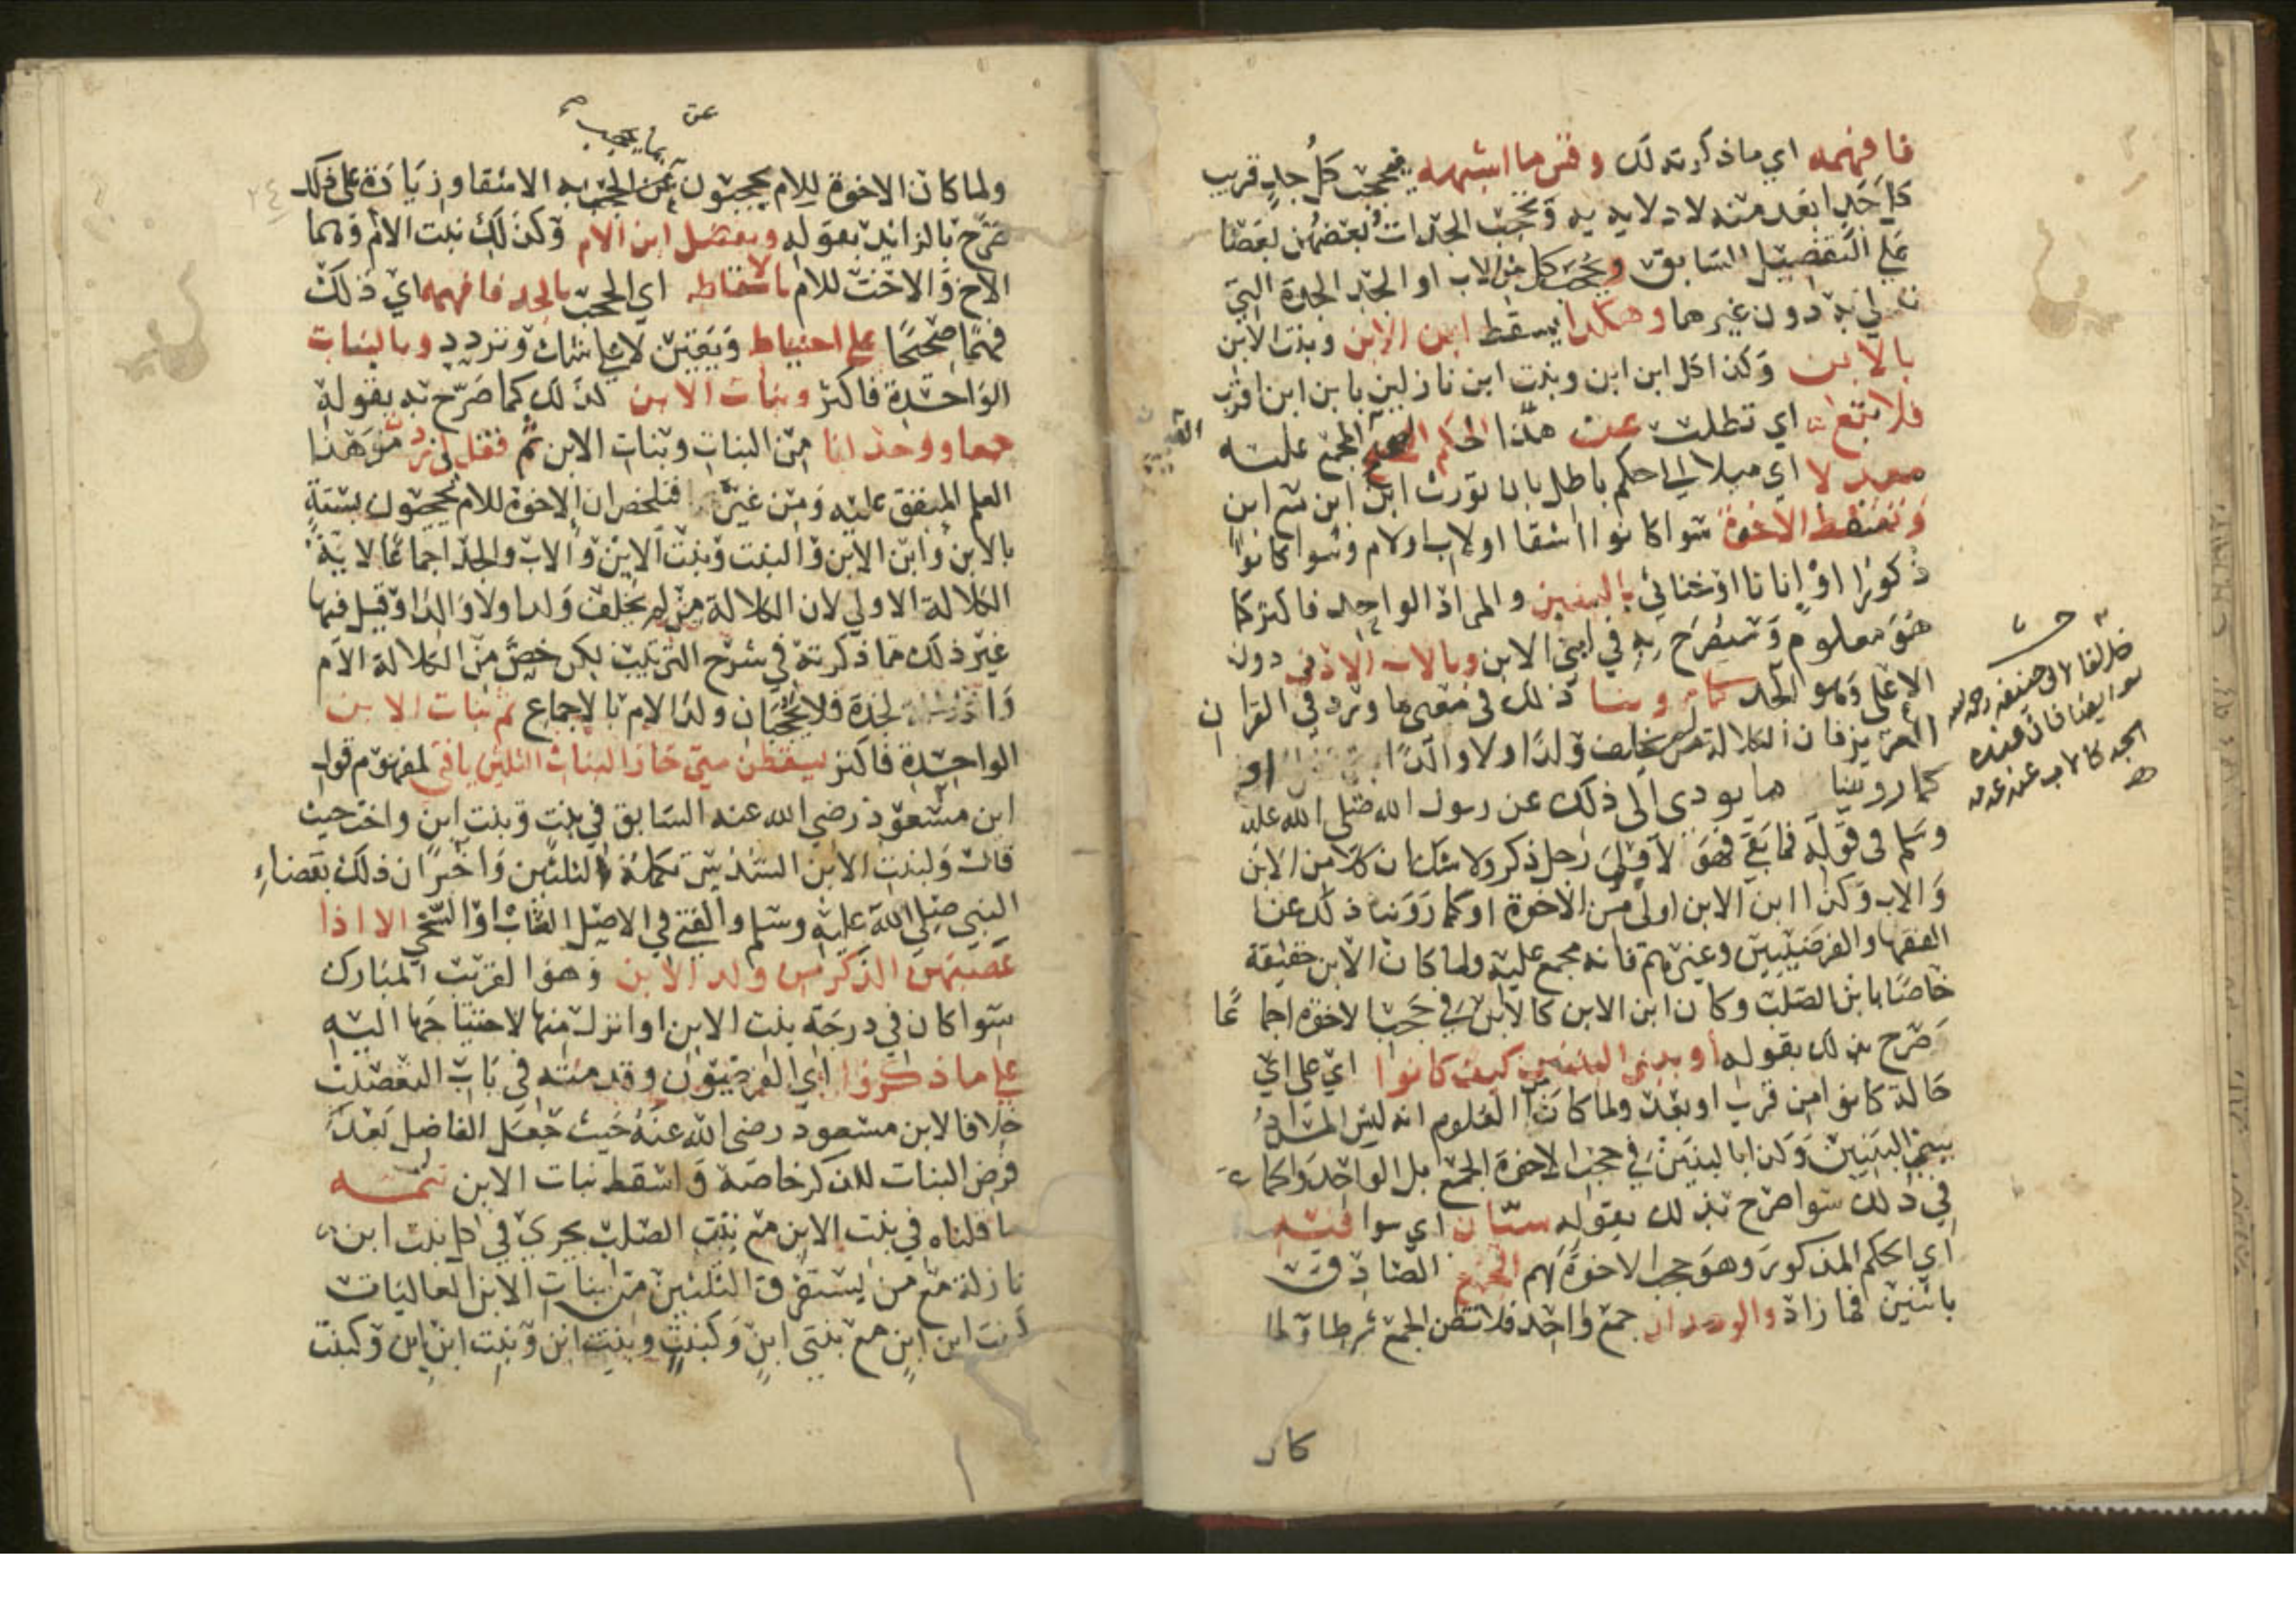 فافهمه اي ما ذكرته لك وقس ما اشبهه فيحجب كل جد قريب
كل جد ابعد منه لادلايه به وتحجب الجدات بعضهن بعضا
علي التفصيل السابق ويحجب كل من الاب او الجد الجدة التي
تدلي به دون غيرهما وهكذا يسقط ابن الابن وبنت الابن
بالابن وكذا كل ابن ابن وبنت ابن نازلين بابن ابن اقرب
فلا تبغ اي تطلب عن هذا الحكم الصحيح المجمع عليه
معدلا اي ميلا الي حكم باطل بان تورث ابن ابن مع ابن
وتسقط الاخوة سوا كانوا اشقا او لاب او لام وسوا كانوا
ذكورا او اناثا او خناثي بالبنين والمراد الواحد فاكثر كما
هو معلوم وسيصرح به في ابن الابن وبالاب الادنى دون
الاعلي وهو الجد كما روينا ذلك في معنى ما ورد في القران
العزيز فان الكلالة من لم يخلف ولدا ولا والدا او
كما روينا ما يودى الى ذلك عن رسول الله صلى الله عليه
وسلم في قوله فما بقي فهو لاولي رجل ذكر ولا شك ان كلا من الابن
والاب وكذا ابن الابن اولى من الاخوة او كما روينا ذلك عن
الفقها والفرضيين وغيرهم فانه مجمع عليه ولما كان الابن حقيقة
خاصا بابن الصلب وكان ابن الابن كالابن في حجب الاخوة اجماعا
صرح بذلك بقوله او ببني البنين كيف كانوا اي على اي
حالة كانوا من قرب او بعد ولما كان من المعلوم انه ليس المراد
ببني البنين وكذا بالبنين في حجب الاخوة الجمع بل الواحد والجماعة
في ذلك سوا صرح بذلك بقوله سيان اي سوا فيه
اي الحكم المذكور وهو حجب الاخوة بهم الجمع الصادق
باثنين فما زاد والوحدان جمع واحد فلا تظن الجمع شرطا ولما
كان
خلافا لابي حنيفة رحمه الله
الجد كالاب عند عدمه
ولما كان الاخوة للام يحجبون بمن يحجب به الاشقا وزيادة على ذلك
صرح بالزايد بقوله ويفضل ابن الام وكذلك بنت الام وهما
الاخ والاخت للام بالاسقاط اي الحجب بالجد فافهمه اي ذلك
فهما صحيحا على احتياط وتيقن لا على شك وتردد وبالبنات
الواحدة فاكثر وبنات الابن كذلك كما صرح به بقوله
جمعا ووحدانا من البنات وبنات الابن ثم فقل لي زدني من هذا
العلم المتفق عليه ومن غيره فتلخص ان الاخوة للام يحجبون بستة
بالابن وابن الابن والبنت وبنت الابن والاب والجد اجماعا لاية
الكلالة الاولي لان الكلالة من لم يخلف ولدا ولا والدا وقيل فيها
غير ذلك مما ذكرته في شرح الترتيب لكن خص من الكلالة الام
والجدة فلا يحجبان ولد الام بالاجماع ثم بنات الابن
الواحدة فاكثر يسقطن متى حاز البنات الثلثين يا فتى لمفهوم قول
ابن مسعود رضي الله عنه السابق في بنت وبنت ابن واخت حيث
قال ولبنت الابن السدس تكملة الثلثين واخبر ان ذلك بقضاء
النبي صلى الله عليه وسلم والفتي في الاصل الشاب او السخي الا اذا
عصبهن الذكر من ولد الابن وهو القريب المبارك
سوا كان في درجة بنت الابن او انزل منها لاحتياجها اليه
علي ما ذكروا اي الفرضيون وقدمته في باب التعصيب
خلافا لابن مسعود رضي الله عنه حيث جعل الفاضل بعد
فرض البنات للذكر خاصة واسقط بنات الابن تتمه
ما قلناه في بنت الابن مع بنت الصلب يجري في كل بنت ابن
نازلة مع من يستغرق الثلثين من بنات الابن العاليات
كبنت ابن ابن مع بنتي ابن وكبنت وبنت ابن وبنت ابن ابن وكبنت